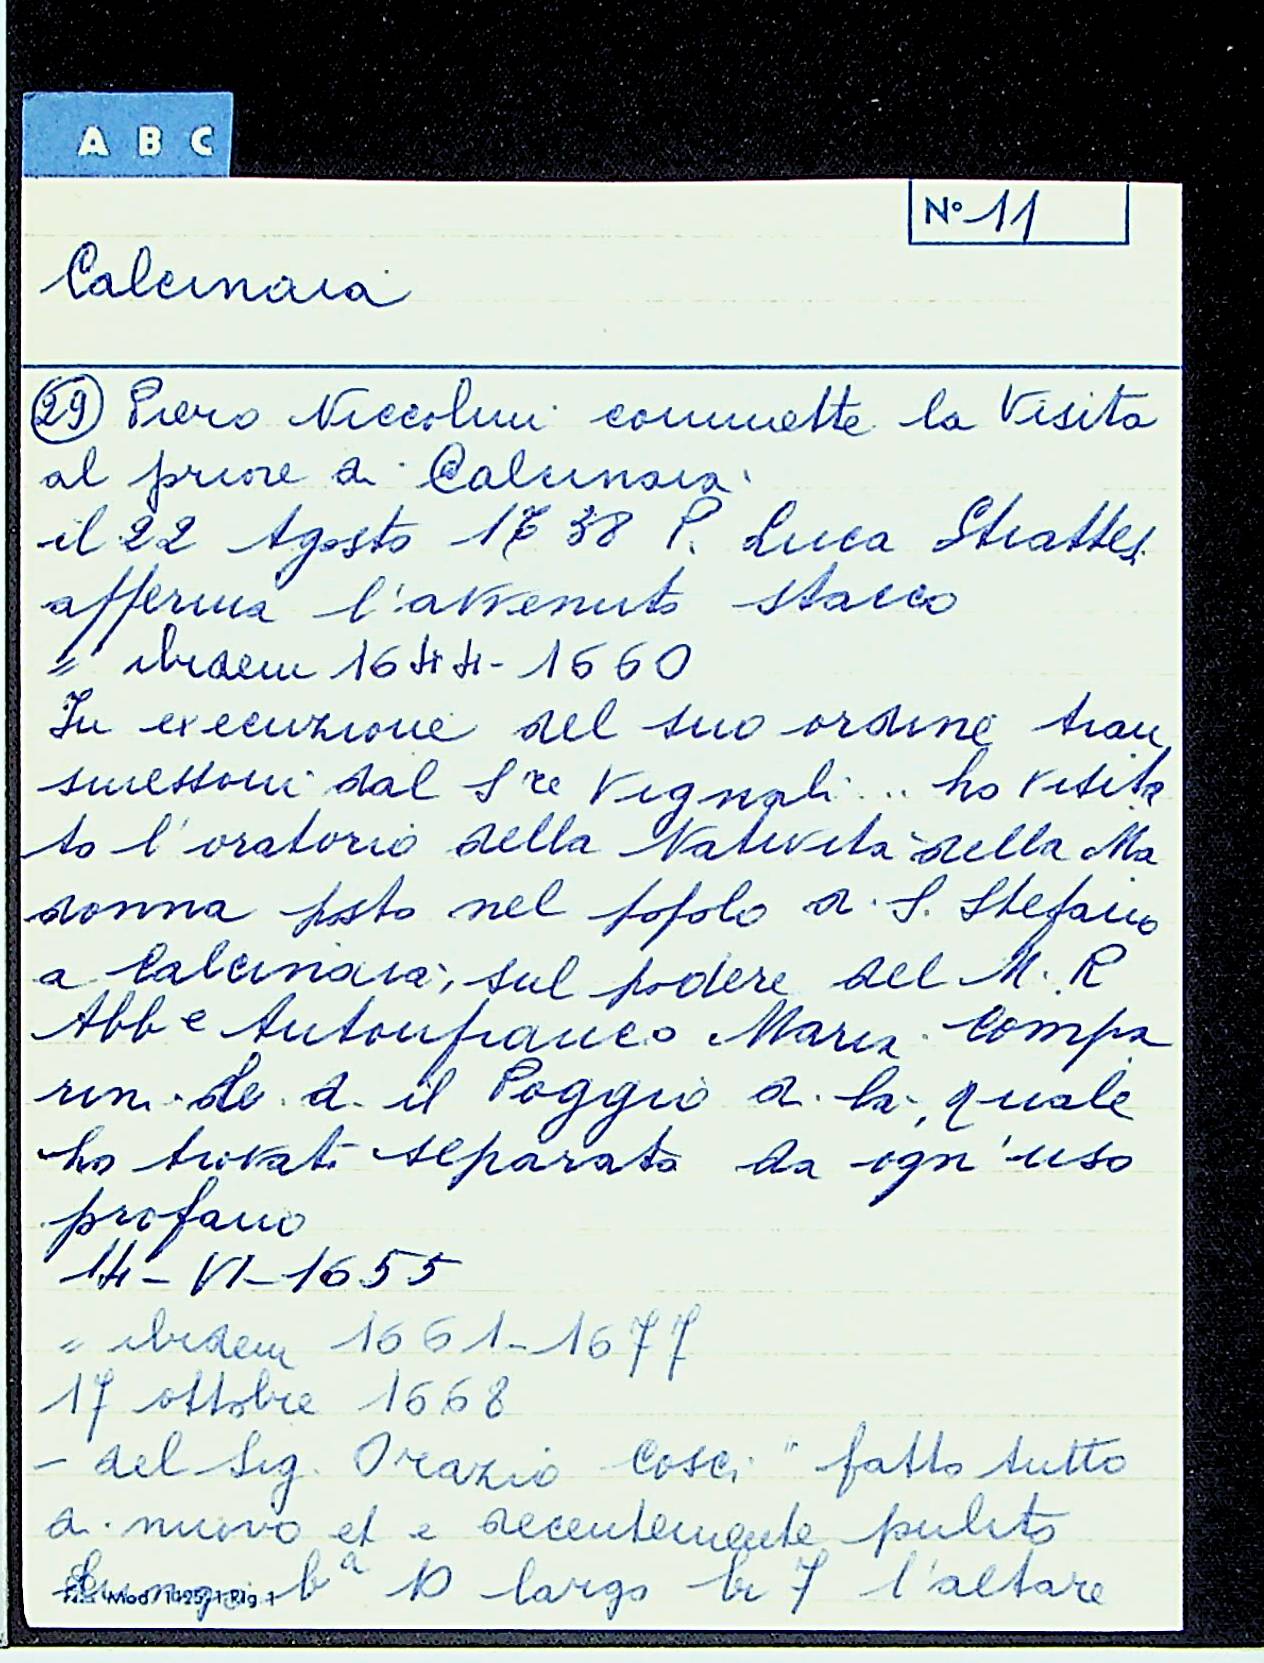 A B C
N° 11
Calcinaia
29 Piero Niccolini commette la Visita
al priore di Calcinaia
il 22 Agosto 1638 P. Luca
afferma l'avvenuto stacco
" ibidem 1644-1660
In execuzione del suo ordine tran
smessomi dal Sre Vignali ... ho visita
to l'oratorio della Natività della Ma
donna posto nel popolo di S. Stefano
a Calcinaia, sul podere del M. R
Abbe Antonfranco Maria Compa
rini do d. il Poggio di là, quale
ho trovati separato da ogn'uso
profano
14-VI-1655
" ibidem 1661-1677
17 ottobre 1668
- del Sig. Orazio Cosci " fatto tutto
di nuovo et e decentemente pulito
Lungo ba 10 largo br 7 l'altare
Mod.